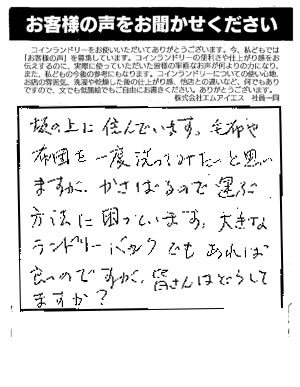 お客様の声をお聞かせください
コインランドリーをお使いいただいてありがとうございます。今、私どもでは
「お客様の声」を募集しています。コインランドリーの便利さや仕上がり感をお
伝えするのに、実際に使っていただいた皆様の率直なお声が何よりの力になり、
また、私どもの今後の参考にもなります。コインランドリーについての使い心地、
お店の雰囲気、洗濯や乾燥した後の仕上がり感、他店との違いなど、何でもあり
ですので、文でも似顔絵でもご自由にお書きください。ありがとうございます。
株式会社エムアイエス　社員一同
坂の上に住んでいます。毛布や
布団を一度洗ってみたいと思い
ますが、かさばるので運ぶ
方法に困っています。大きな
ランドリーバックでもあれば
良いのですが、皆さんはどうして
ますか？